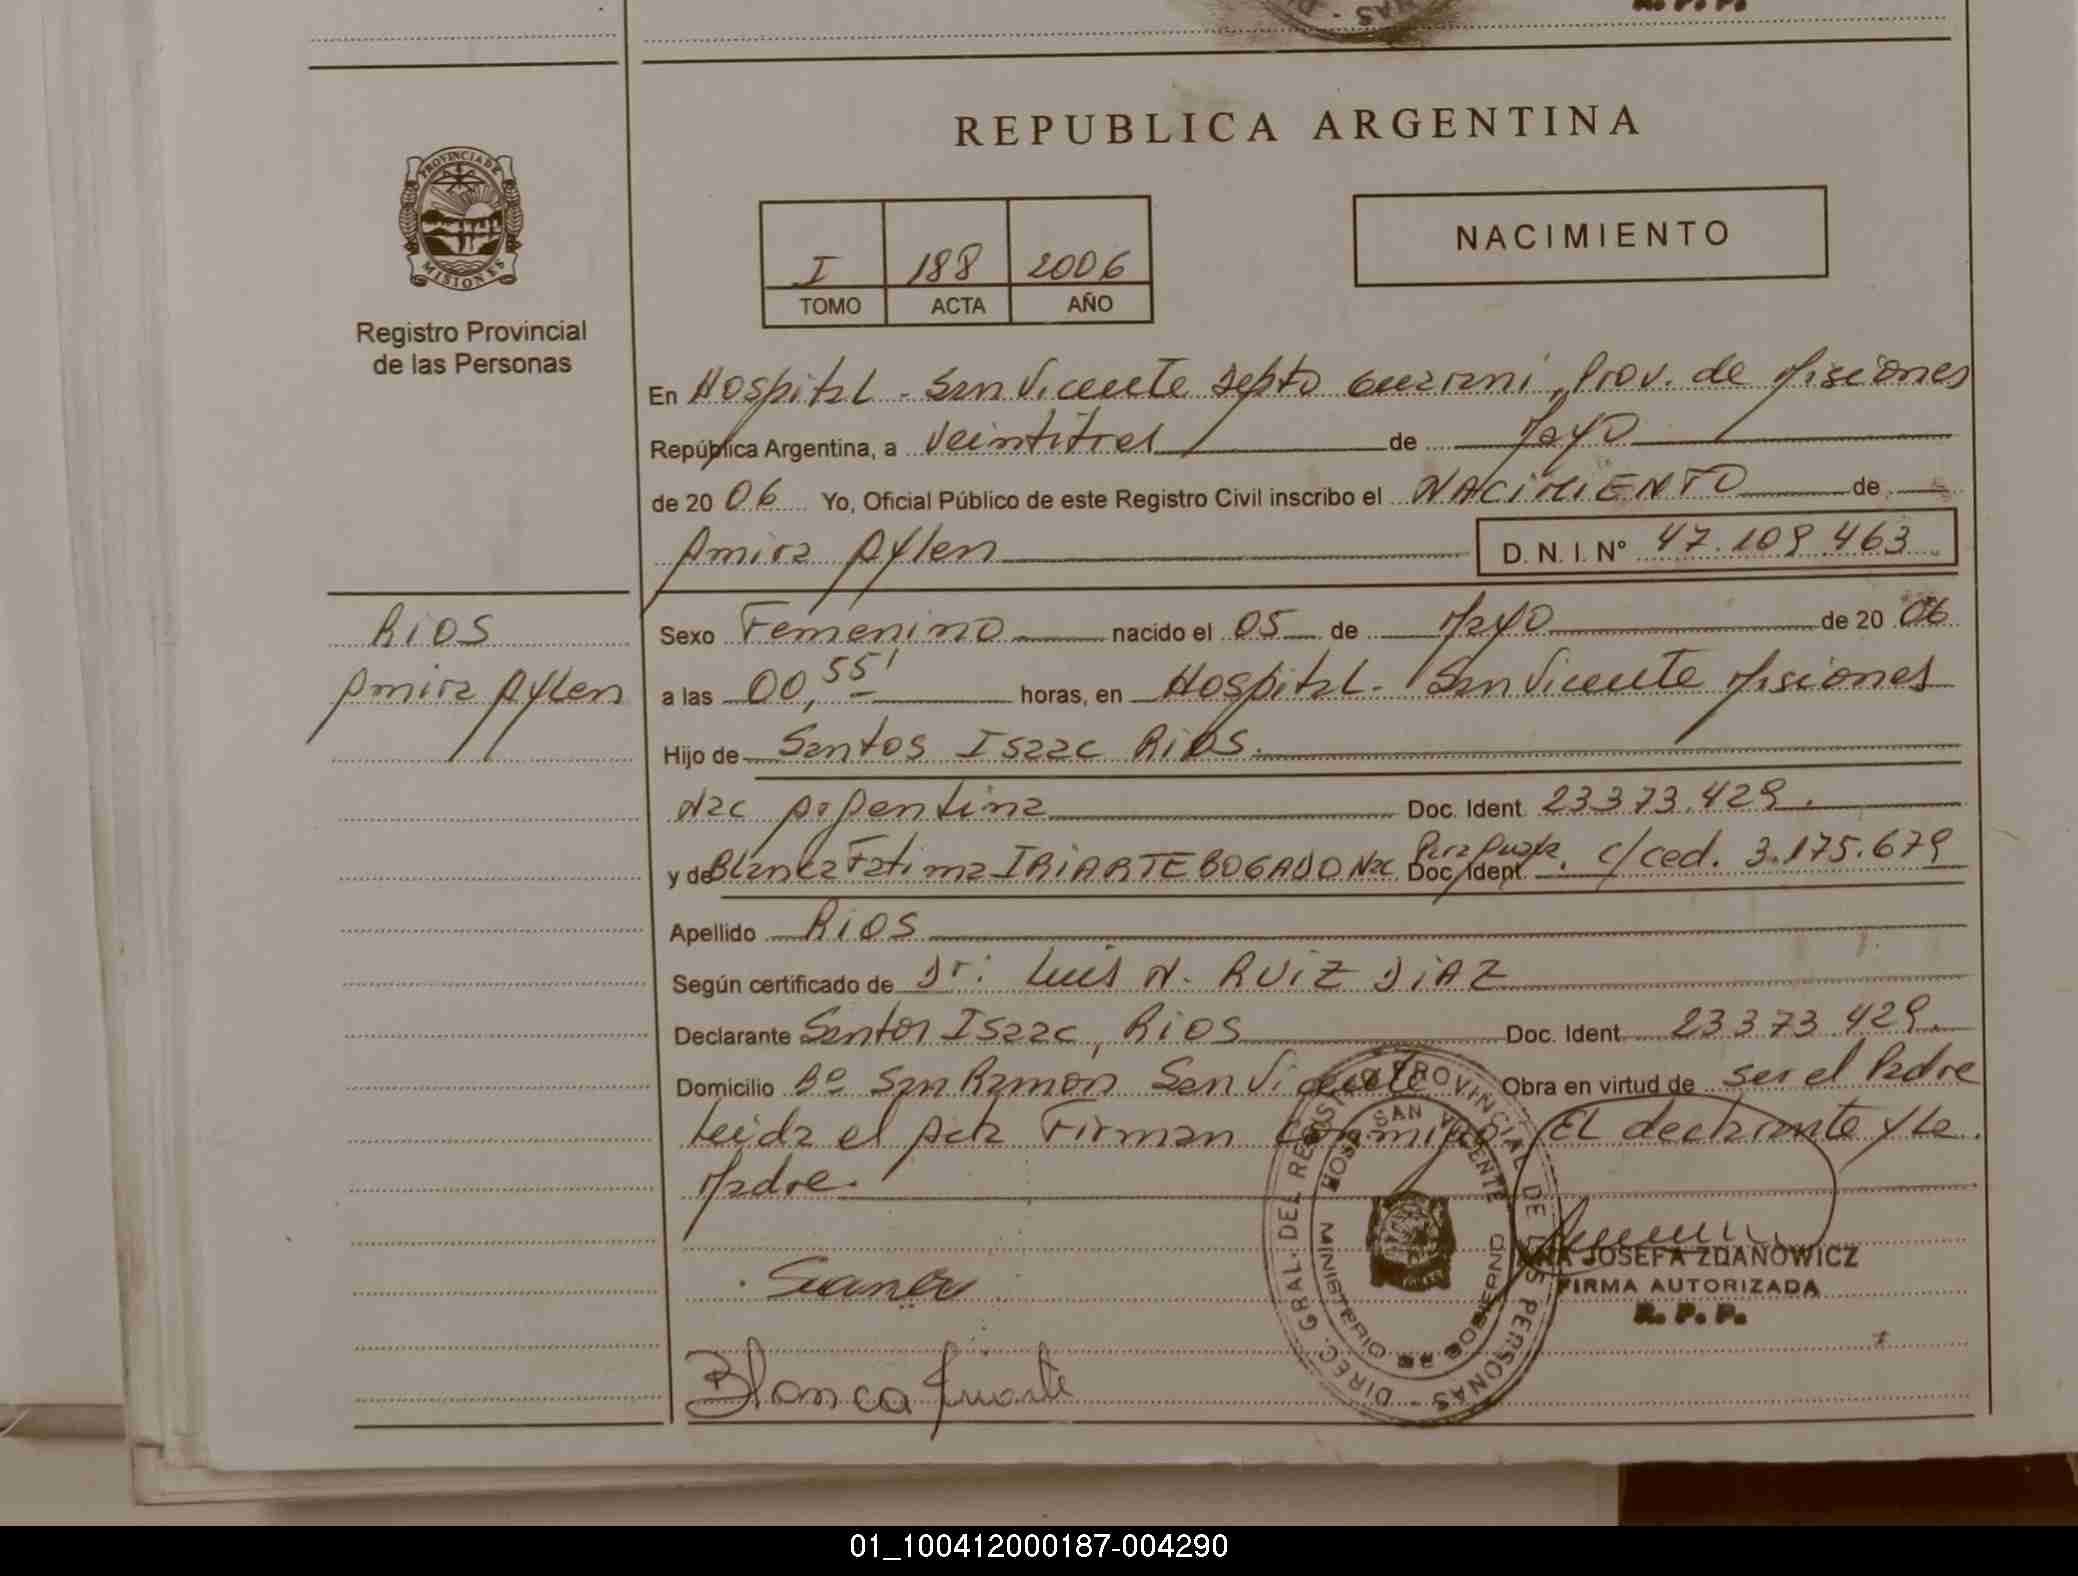 R. P. P.
REPUBLICA ARGENTINA
PROVINCIA DE MISIONES
Registro Provincial
de las Personas
I 188 2006
TOMO ACTA AÑO
NACIMIENTO
En Hospital - San Vicente Depto Guarani, Prov. de Misiones
República Argentina, a Veintitres de Mayo
de 2006 Yo, Oficial Público de este Registro Civil inscribo el NACIMIENTO de
Amira Aylen D. N. I. Nº 47.109.463
RIOS
Amira Aylen
Sexo Femenino nacido el 05 de Mayo de 2006
a las 00,55' horas, en Hospital - San Vicente Misiones
Hijo de Santos Isaac Rios.
Nac Argentina Doc. Ident. 23373.429.
y de Blanca Fatima IRIARTE BOGADO Nac Doc. Ident. c/ced. 3.175.679
Apellido RIOS
Según certificado de Dr: Luis N. RUIZ DIAZ
Declarante Santos Isaac, Rios Doc. Ident. 23373.429.
Domicilio Bº San Ramon San Vicente Obra en virtud de ser el Padre
Leida el Acta Firman Conmigo El declarante y la
Madre.
DIREC. GRAL. DEL REGISTRO PROVINCIAL DE LAS PERSONAS
HOSP. SAN VICENTE
MINISTERIO DE GOBIERNO
ANA JOSEFA ZDANOWICZ
FIRMA AUTORIZADA
R. P. P.
Blanca Iriarte
01_100412000187-004290